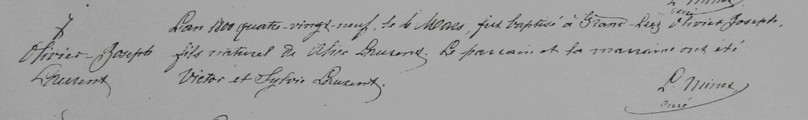 curé
L'an 1800 quatre-vingt-neuf, le 6 Mars, fut baptisé à Grand-Leez Olivier-Joseph,
Olivier-Joseph
Laurent
fils naturel de Alier Laurent. Le parrain et la marraine ont été
Victor et Sylvie Laurent.
L. Minet
curé